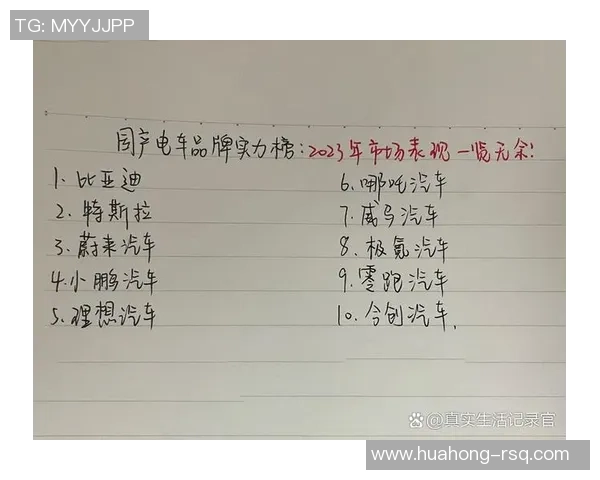 TG: MYYJJPP
国产电车品牌实力榜:2023年市场表现一览无余!
1. 比亚迪
2. 特斯拉
3. 蔚来汽车
4. 小鹏汽车
5. 理想汽车
6. 哪吒汽车
7. 威马汽车
8. 极氪汽车
9. 零跑汽车
10. 今创汽车.
@真实生活记录官
www.huahong-rsq.com